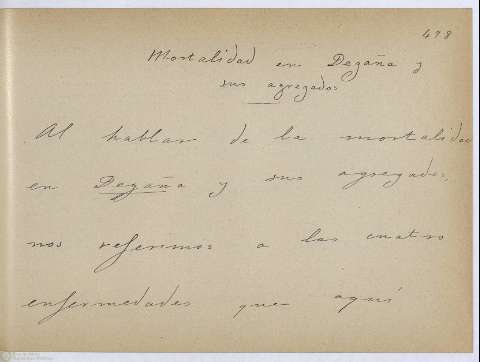 478
Mortalidad en Degaña y
sus agregados
Al hablar de la mortalidad
en Degaña y sus agregados,
nos referimos a las cuatro
enfermedades que aquí